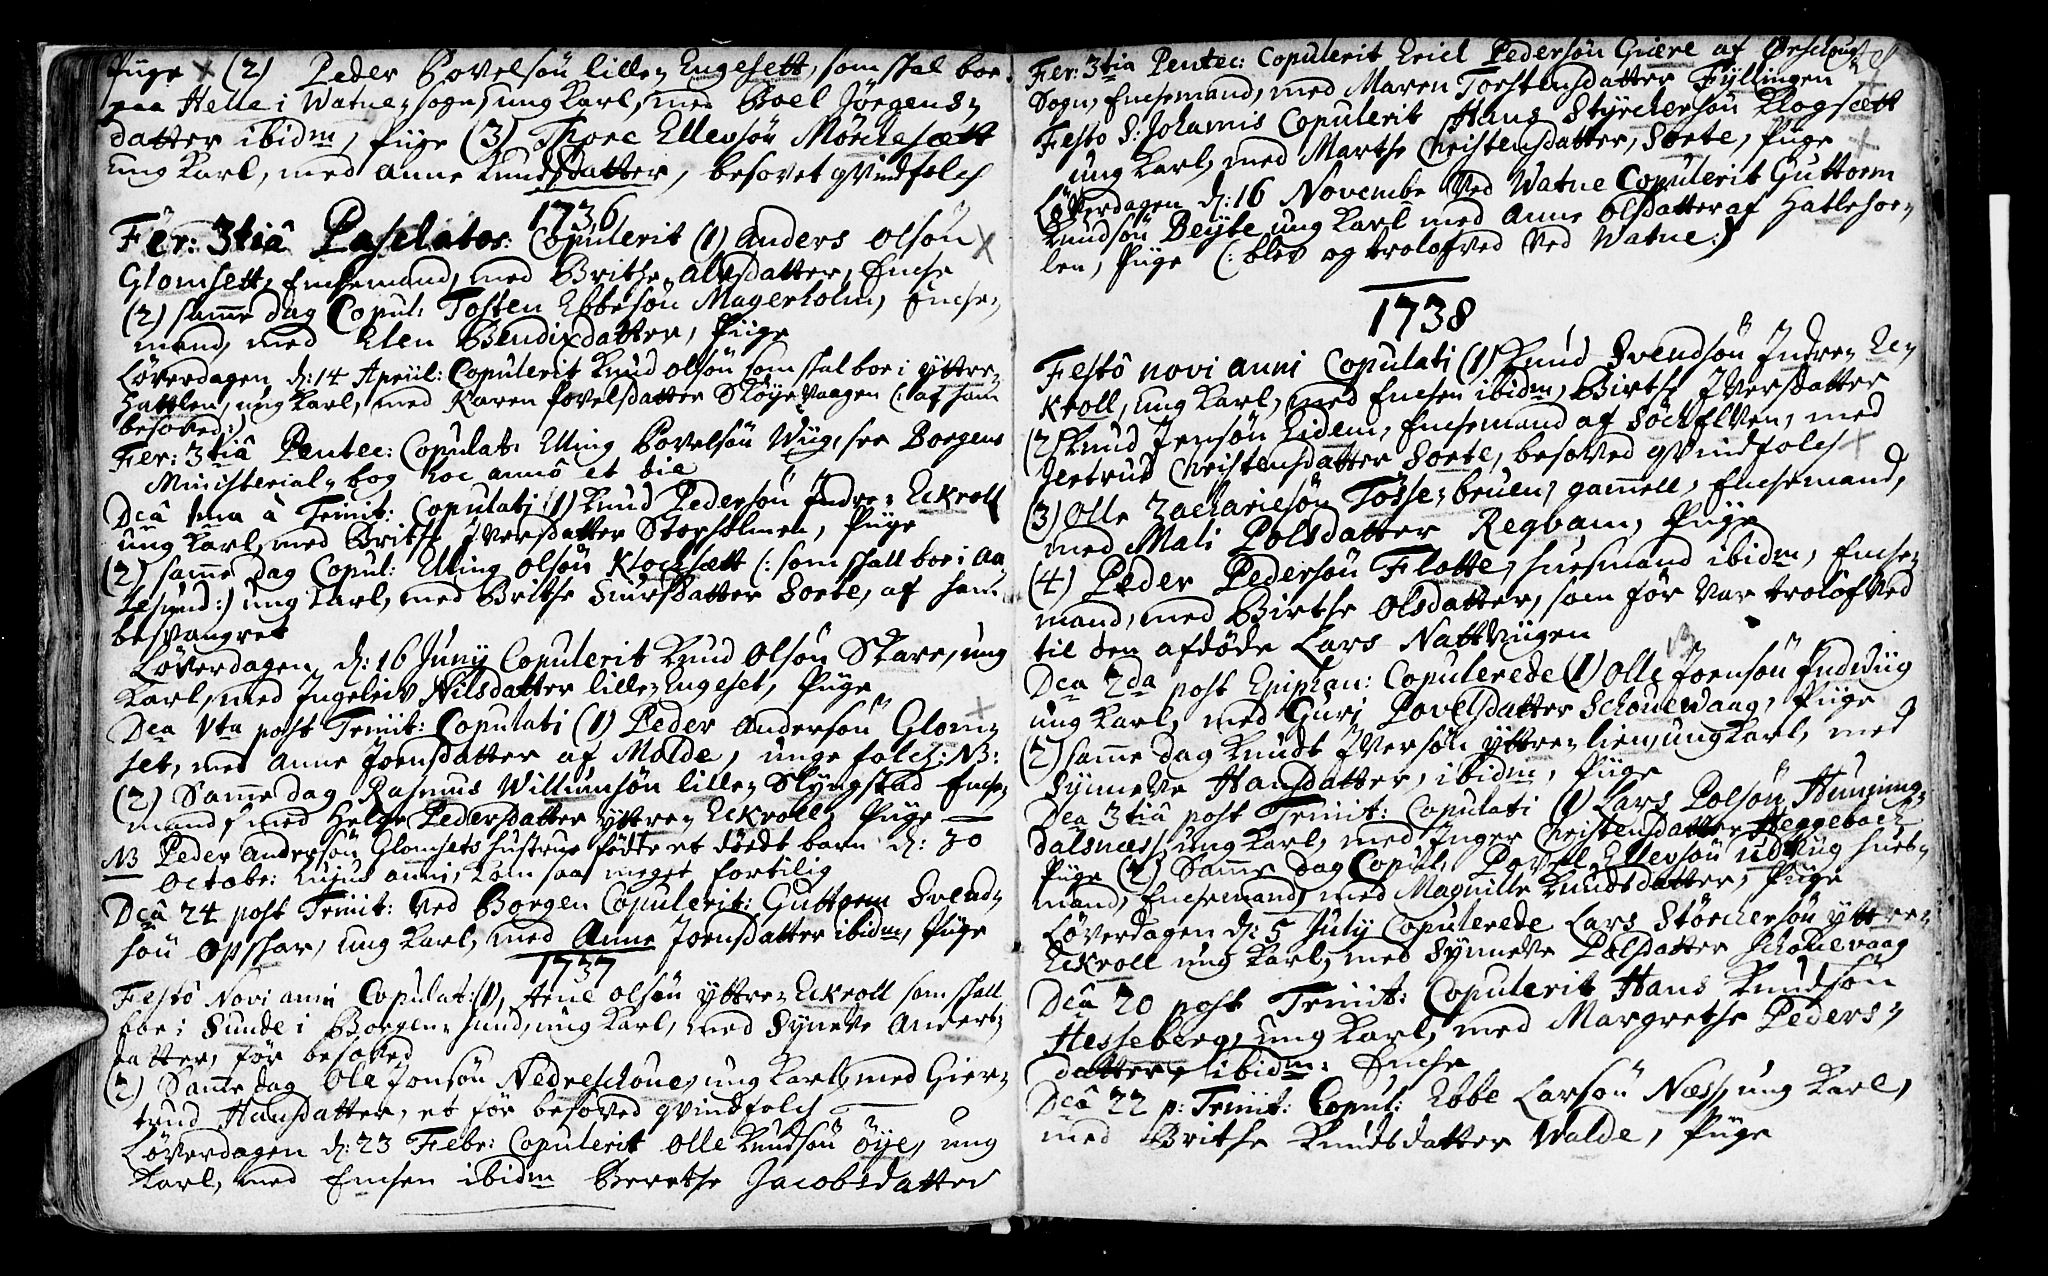 Piige (2) Peder Povelsøn lille Engesett, som skal boe
paa Helle i Watne sogn, ung Karl, med Boel Jørgens
datter ibidm, Piige (3) Thore Ellevsøn Mørchesætt
ung Karl, med Anne Knudsdatter, besovet qvindfolch
1736
Fer: 3tiâ Paschatos: Copulerit (1) Anders Olsøn
Glomsett, Enchemand, med Brithe Alvsdatter, Enche
(2) samme dag Copul: Tosten Ebbesøn Magerholm, Enche
mand, med Elen Bendixdatter, Piige
Løverdagen d: 14 Apriil: Copulerit Knud Olsøn som skal boe i yttre
Hattlen, ung Karl, med Karen Povelsdatter Skøyevaagen (: af ham
besoved:)
Fer: 3tiâ Pentec: Copulat: Elling Povelsøn Wiig, see Borgens
Ministerial bog hoc annô et die
Dcâ 1ma à Trinit: Copulati (1) Knud Pedersøn Indre Eckroll
ung Karl, med Brithe Iversdatter Storholmen, Piige
(2) samme dag Copul: Elling Olsøn Klocksætt (: som skall boe i Aa
lesund:) ung Karl, med Brithe Siursdatter Sorte, af ham
besvangret
Løverdagen, d: 16 Junij Copulerit Knud Olsøn Skare, ung
Karl, med Ingeleiv Nilsdatter lille Engeset, Piige
Dca Vta post Trinit: Copulati (1) Peder Andersøn Glom
set, med Anne Joensdatter af Molde, unge folch: NB:
(2) Samme dag Rasmus Willumsøn lille Slyngstad Enche
mand, med Helge Pedersdatter yttre Eckroll, Piige
NB Peder Andersøn Glomsets hustrue fødte et dødt barn d: 30
Octobr: hujus anni, kom saa meget fortilig
Dcâ 24 post Trinit: ved Borgen Copulerit: Guttorm Svend
søn Opskar, ung Karl, med Anne Joensdatter ibidm, Piige
1737
Festô Novi anni Copulat: (1), Arne Olsøn yttre Eckroll som skall
boe i Sunde i Borgen sund, ung Karl, med Synneve Anders
datter, før besoved
(2) Samme dag Ole Jonsøn Nedreschoue, ung Karl, med Gier
trud Hansdatter, et før besoved qvindfolch
Løverdagen d: 23 Febr: Copulerit Olle Knudsøn Øye, ung
Karl, med Enchen ibidm Berethe Jacobsdatter
Fer: 3tia Pentec: Copulerit Erich Pedersøn Giære af Ørschoug
Sogn, Enchemand, med Maren Torstensdatter Fyllingen
Festo S: Johannis Copulerit Hans Styrchersøn Klogsætt
ung Karl, med Marthe Christensdatter, Sorte, Piige
Løverdagen d: 16 Novembr ved Watne Copulerit Guttorm
Knudsøn Beyte ung Karl med Anne Olsdatter af Hatlehoe
len, Piige (: blev og trolofved ved Watne:)
1738
Festô novi anni Copulati (1) Knud Svendsøn Indre Ec
kroll, ung Karl, med Enchen ibidm, Birthe Iversdatter
(2) Knud Jensøn Eidem, Enchemand af Sochelven, med
Jertrud Christensdatter Sorte, besoved qvindfolch
(3) Olle Zachariesøn Tøsse bruen, gammell, Enchemand,
med Mali Polsdatter Regbam, Piige
(4) Peder Pedersøn Flotte, huusmand ibidm, Enche
mand, med Birthe Olsdatter, som før var trolofved
til den afdøde Lars Nattviigen
Dca 2da post Epiphan: Copulerede (1) Olle Joensøn Indviig
ung Karl, med Guri Povelsdatter Schouevaag, Piige
(2) samme dag Knudt Iversøn yttre lien, ung Karl, med
Synneve Hansdatter, ibidm, Piige
Dca 3tiâ post Trinit: Copulati (1) Lars Polsøn Hunnings
dalsness, ung Karl, med Inger Christensdatter Heggebach
Piige (2) Samme dag Copul: Povel Ellevsøn Udviig huus
mand, Enchemand, med Magnille Knudsdatter, Piige
Løverdagen d: 5 July Copulerede Lars Størchersøn yttre
Eckroll ung Karl, med Synneve Polsdatter Schouevaag
Dcâ 20 post Trinit: Copulerit Hans Knudsøn
Hesseberg, ung Karl, med Margrethe Peders
datter, ibidm: Enche
Dcâ 22 p: Trinit: Copul: Ebbe Larsøn Næss, ung Karl,
med Brithe Knudsdatter Walde, Piige